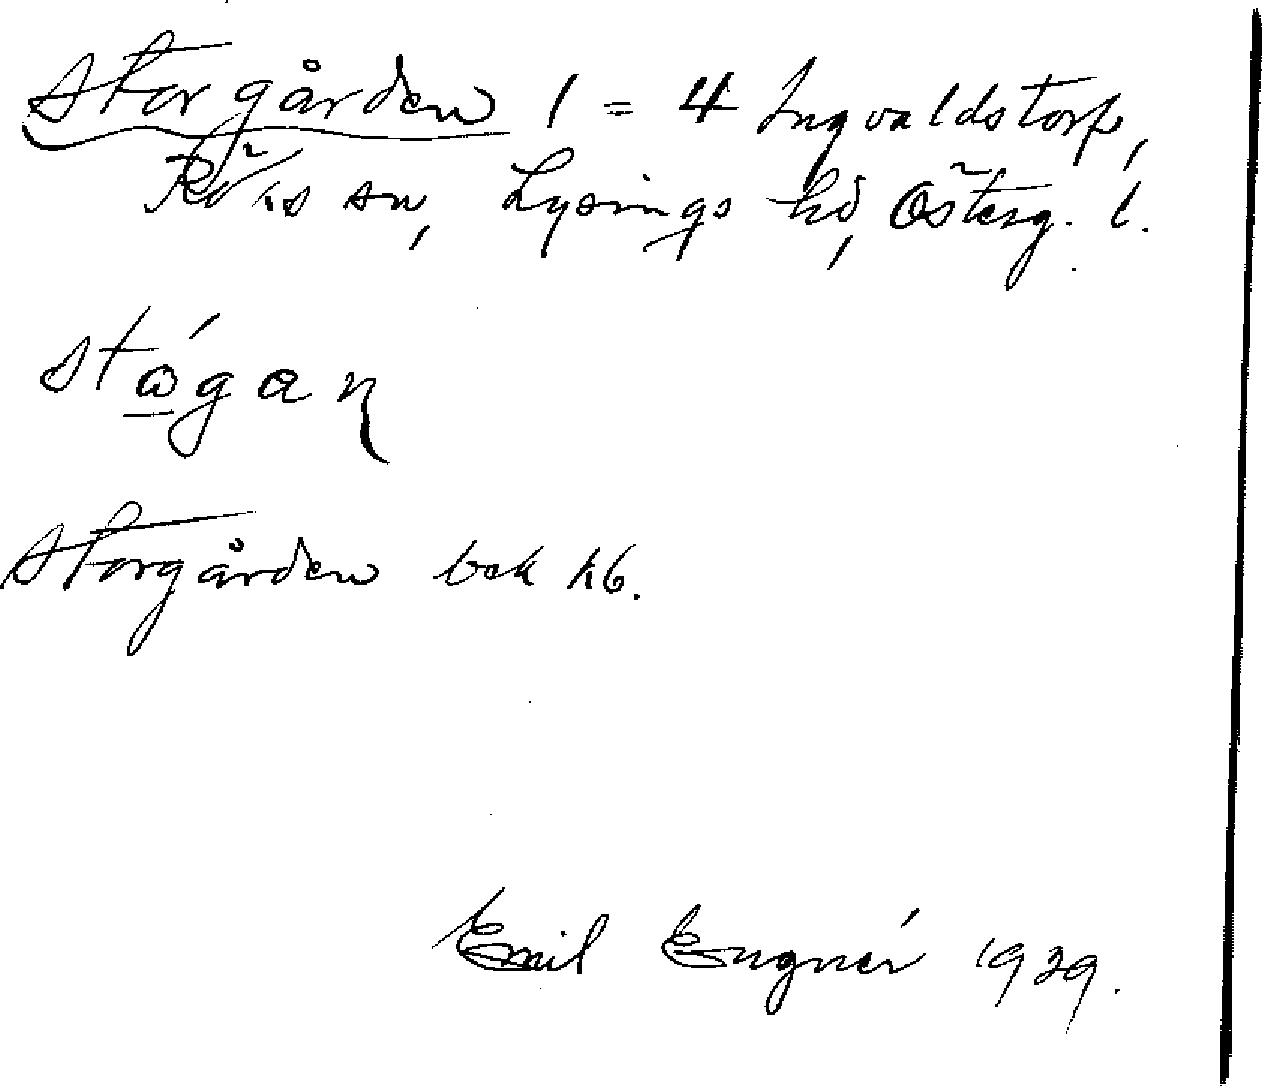 Storgården 1 = 4 Ingvaldstorp,
Röks sn, Lysings hd, Österg. l.
stɷ́gaɳ
Storgården bok hb.
Emil Engnér 1929.